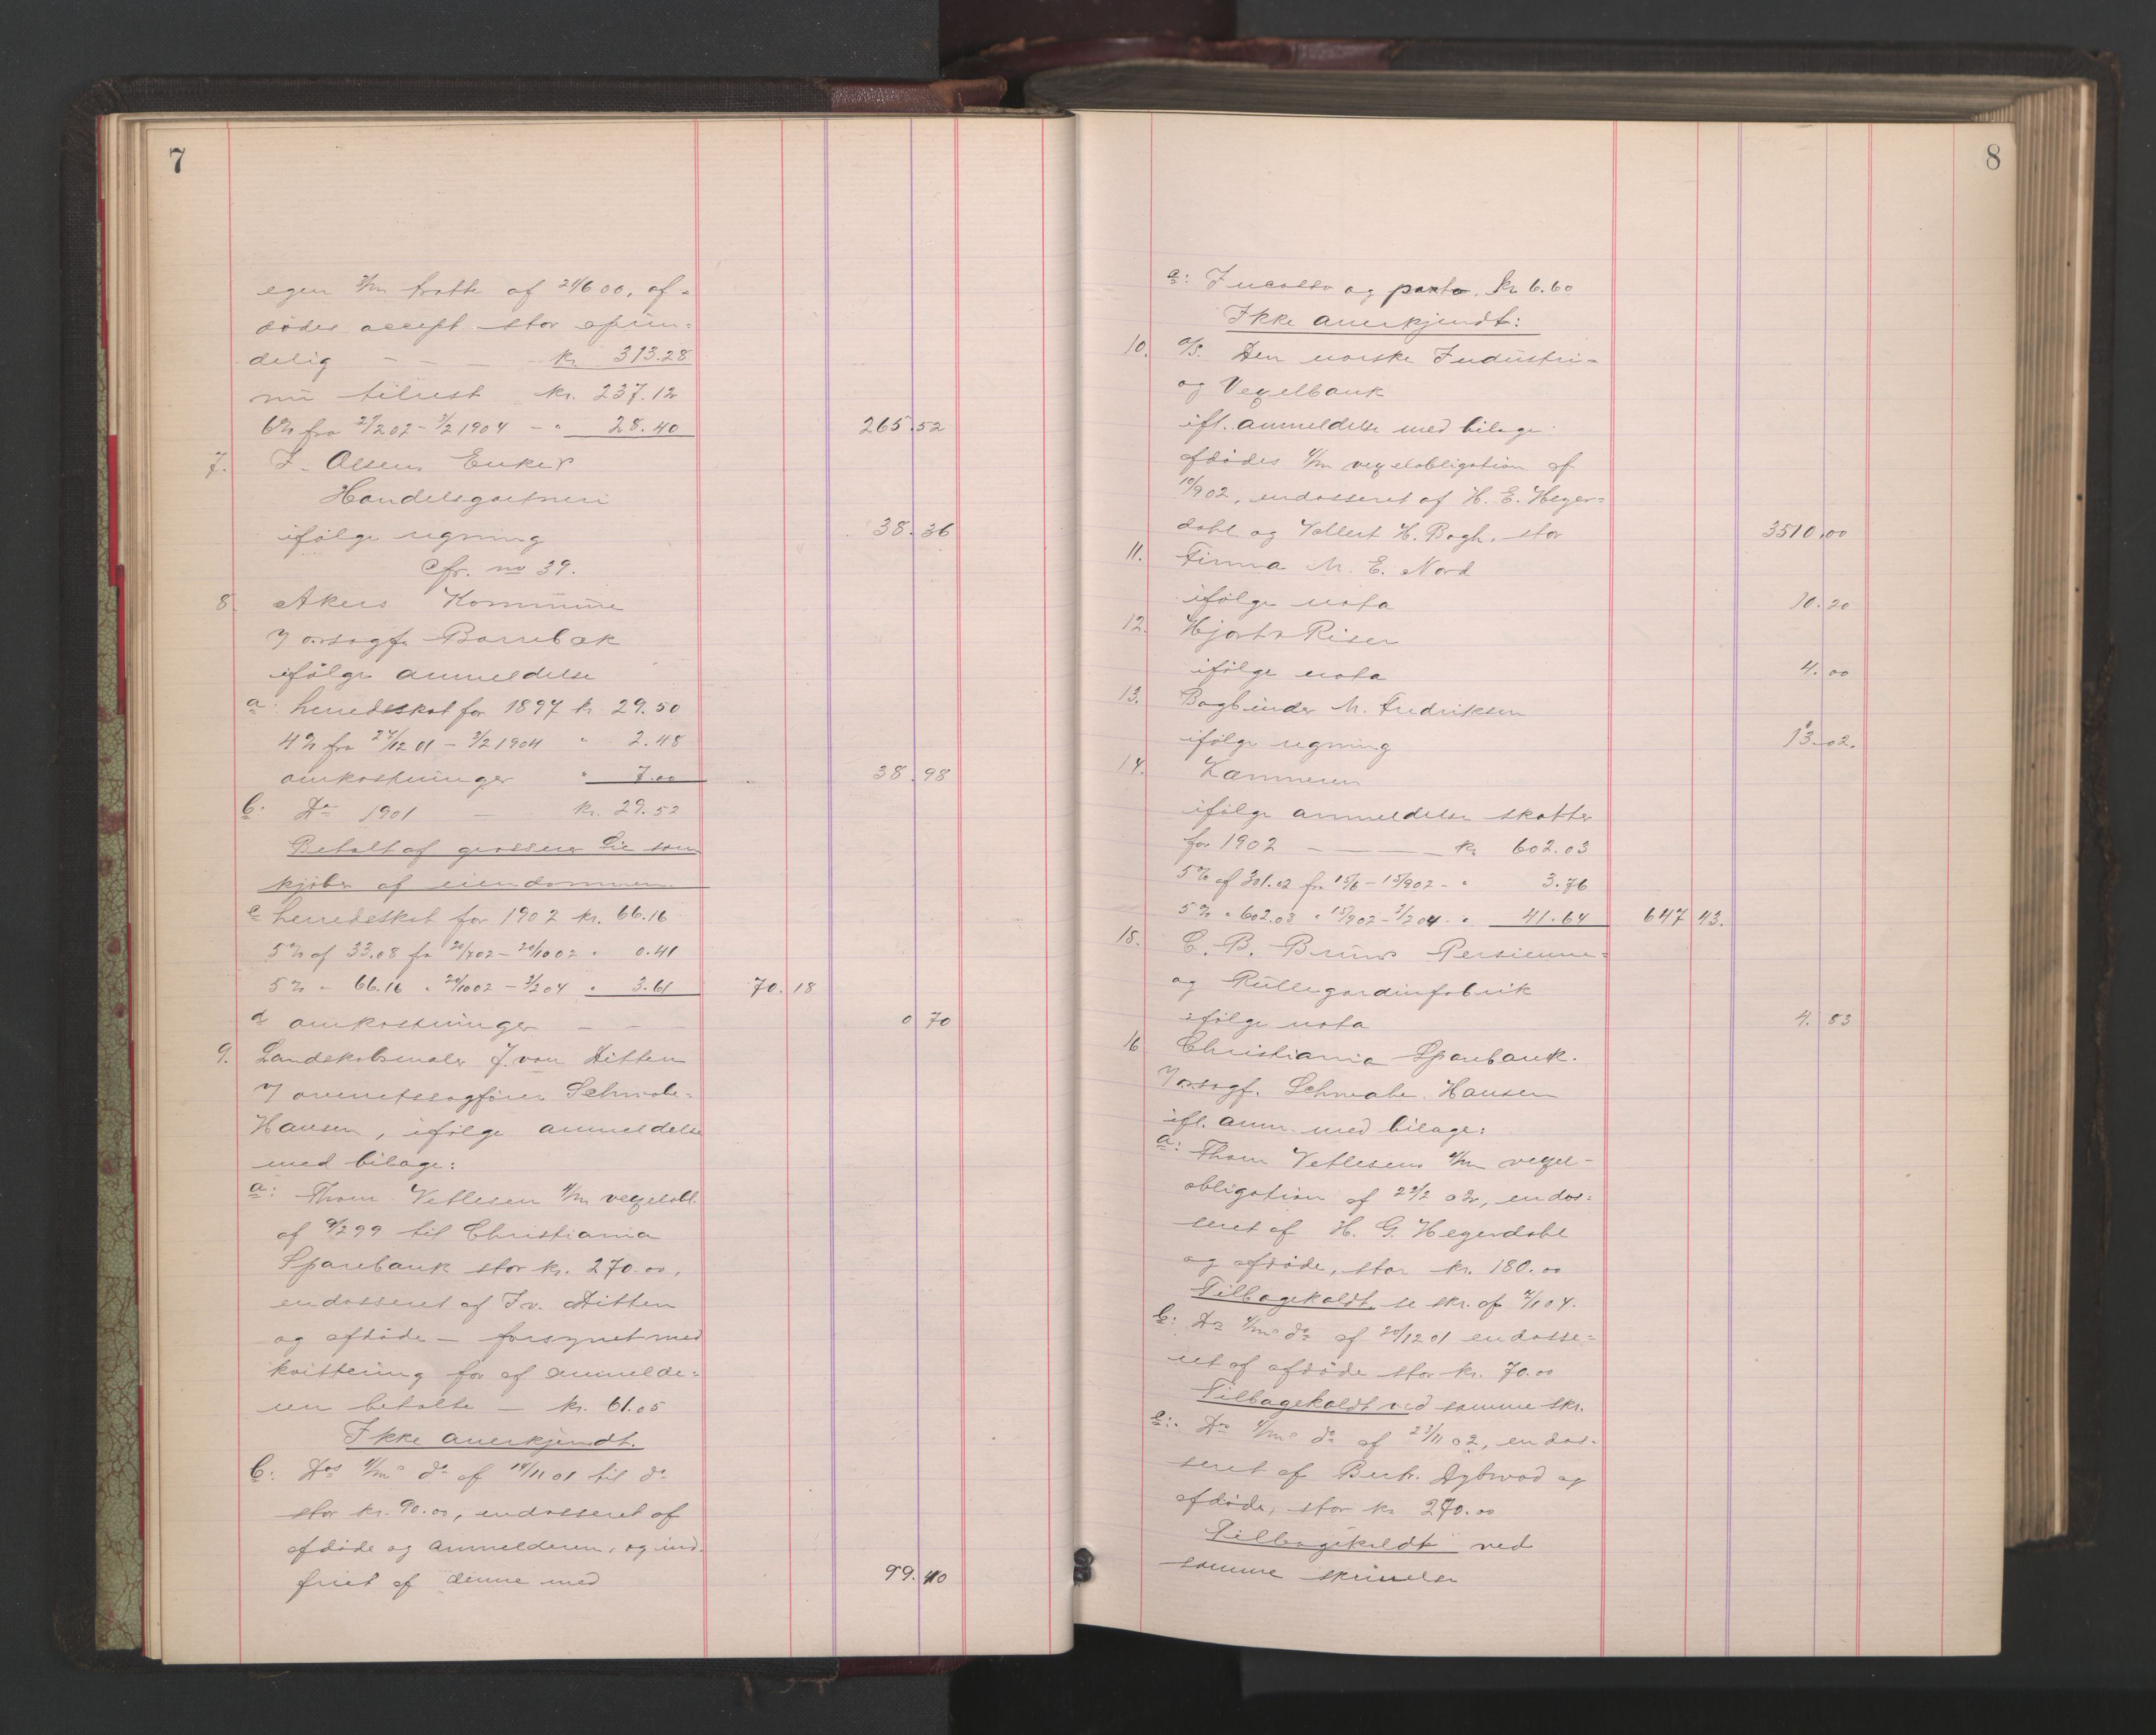 7
egen 3/m tratte af 21/6 00, af=
dødes accept stor oprin=
delig — — — kr. 313.28
nu tilrest kr. 237.12
6% fra 2/2 02 - 2/2 1904 - " 28.40 265.52
7. J. Olsens Enkes
Handelsgartneri
ifølge regning 38.36
Cfr. no 39.
8. Akers Kommune
v/ orsagf. Barrebæk
ifølge anmeldelse
a: herredsskat for 1897 kr. 29.50
4% fra 27/12 01 - 2/2 1904 " 2.48
omkostninger " 7.00 38.98
b: Do 1901 — kr. 29.52
Betalt af grosserer Lie som
kjøber af eiendommen
c herredsskat for 1902 kr. 66.16
5% af 33.08 fra 20/7 02 - 20/10 02 " 0.41
5% - 66.16 " 20/10 02 - 2/2 04 " 3.61 70.18
d omkostninger — — — 0 70
9. Landskabsmaler J. von Ditten
v/ overretssagfører Schwabe=
Hansen, ifølge anmeldelse
med bilage:
a: Thom Vetlesen 4/m vexelobl.
af 9/2 99 til Christiania
Sparebank stor kr. 270.00,
endosseret af J. v. Ditten
og afdøde — forsynet med
kvittering for af anmelde=
ren betalte — kr. 61.05
Ikke anerkjendt.
b: Dos 4/m do af 14/11 01 til do
stor kr. 90.00, endosseret af
afdøde og anmelderen, og ind.
friet af denne med 99.40
8
a: Incasso og porto, kr 6.60
Ikke anerkjendt:
10. A/S. Den norske Industri=
og Vexelbank
ifl. anmeldelse med bilage
afdødes 4/m vexelobligation af
10/9 02, endosseret af H. E. Heger=
dahl og Vollert H. Bogh, stor 3510.00
11. Firma M. E. Nord
ifølge nota 10.20
12. Hjorts Riser
ifølge nota 4.00
13. Bogbinder M. Fredriksen
ifølge regning 13.02.
14. Kæmneren
ifølge anmeldelse skatter
for 1902 — — — kr 602.03
5% af 301.02 fra 15/6 - 15/9 02 - " 3.76
5% " 602.03 " 15/9 02 - 2/2 04 " 41.64 647 43.
15. C. B. Bruns Persienne=
og Rullegardinfabrik
ifølge nota 4.83
16 Christiania Sparebank.
v/ orsagf. Schwabe Hansen
ifl. anm. med bilage:
a: Thom Vetlesens 4/m vexel-
obligation af 22/2 02, endos=
seret af H. G. Hegerdahl
og afdøde, stor kr. 180.00
Tilbagekaldt se skr. af 2/1 04.
b: Do 4/m do af 20/12 01 endosse=
ret af afdøde stor kr. 70.00
Tilbagekaldt ved samme skr.
c: Do 4/m do af 23/11 02, endos-
seret af Bert. Dybwad og
afdøde, stor kr 270.00
Tilbagekaldt ved
samme skrivelse